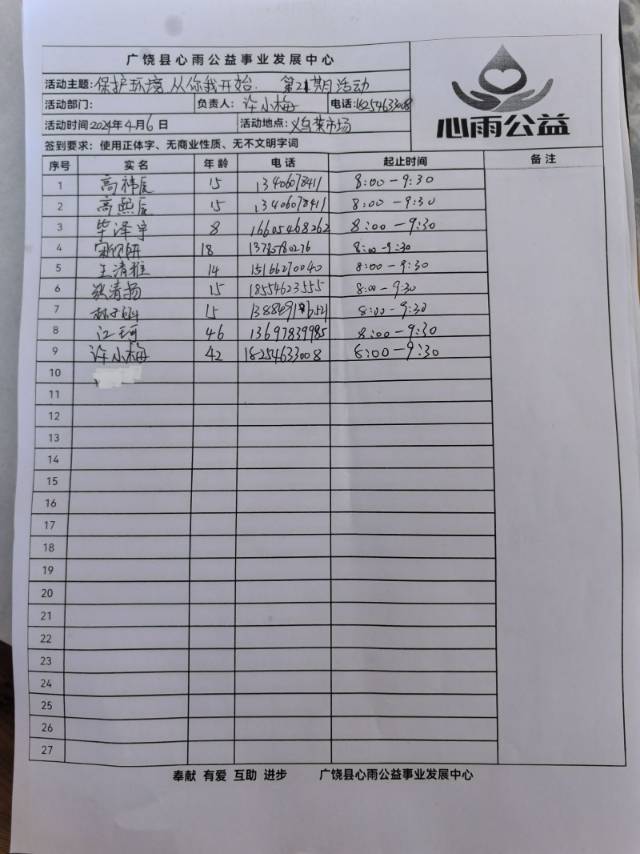 广饶县心雨公益事业发展中心
活动主题:保护环境从你我开始.第21期活动
活动部门: 负责人:许小梅 电话:18254633008
活动时间2024年4月6日 活动地点:义乌菜市场
签到要求:使用正体字、无商业性质、无不文明字词
心雨公益
序号 实名 年龄 电话 起止时间 备注
1 高祎辰 15 13406078411 8:00-9:30
2 高熙辰 15 13406078411 8:00-9:30
3 毕泽宇 8 16605468262 8:00-9:30
4 18 8:00-9:30
5 王清雅 14 15166270040 8:00-9:30
6 张清扬 15 18554623555 8:00-9:30
7 15 8:00-9:30
8 江珂 46 13697839985 8:00-9:30
9 许小梅 42 18254633008 8:00-9:30
10
11
12
13
14
15
16
17
18
19
20
21
22
23
24
25
26
27
奉献 有爱 互助 进步 广饶县心雨公益事业发展中心